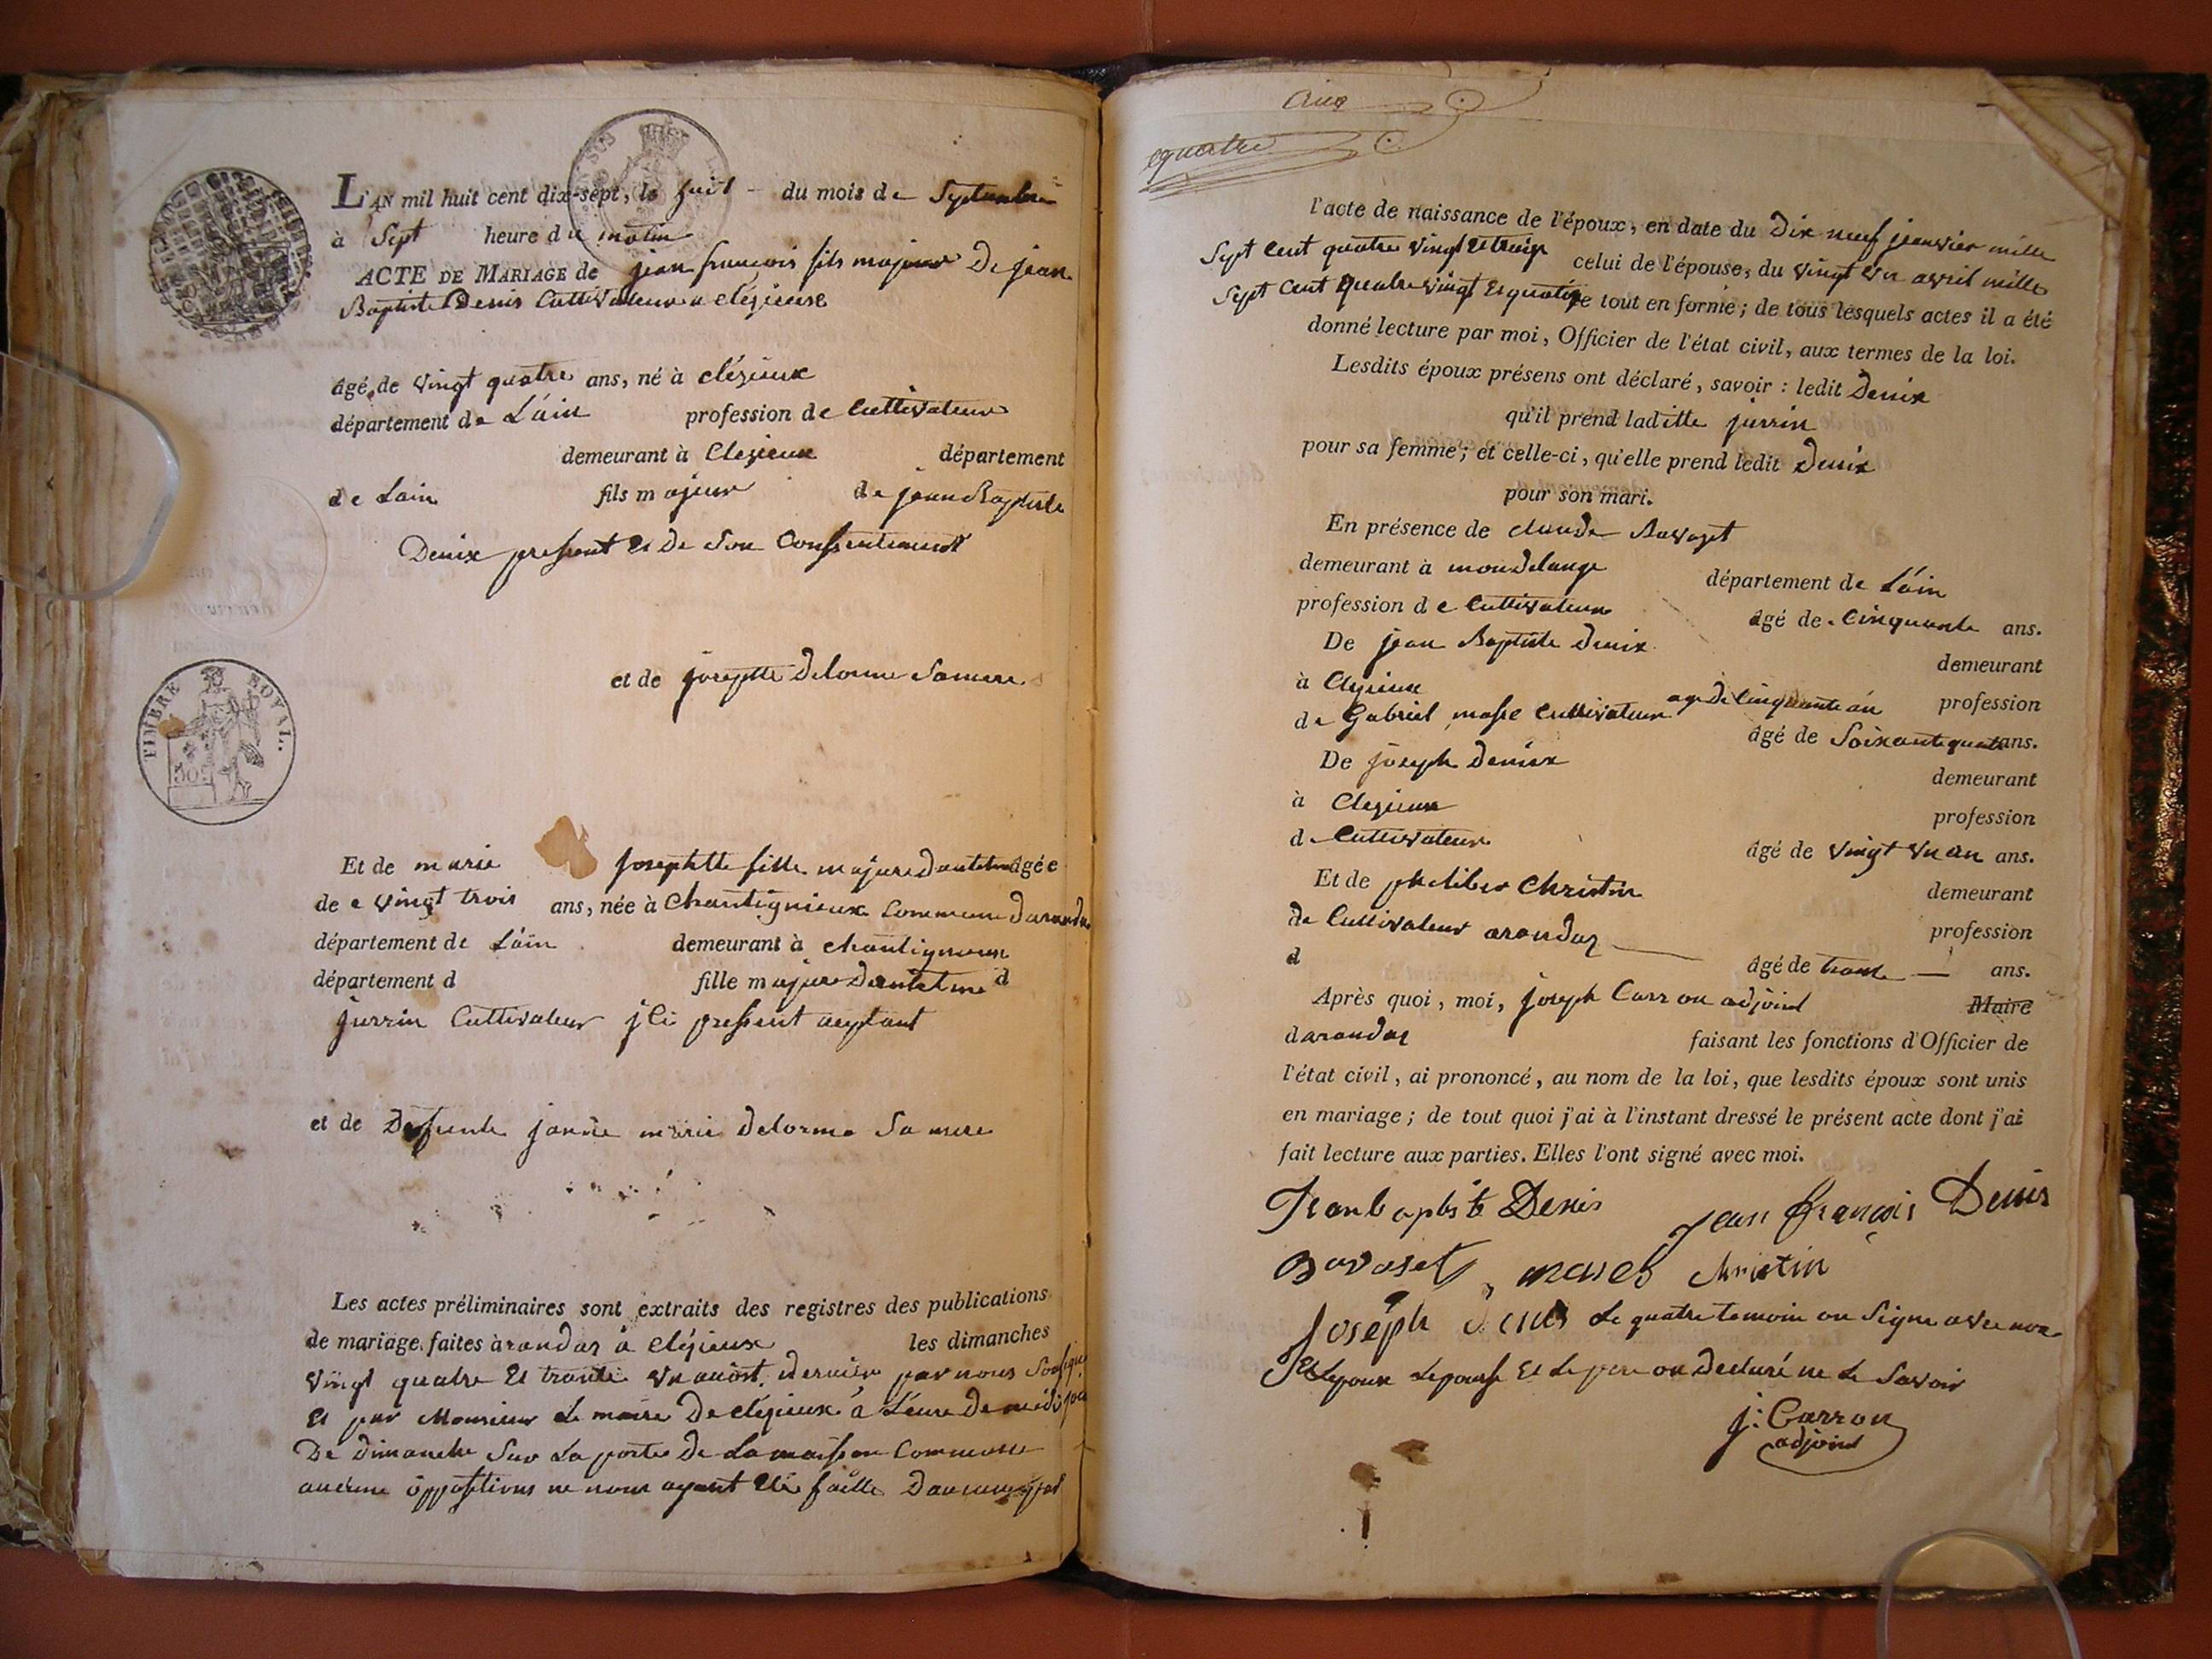 L'AN mil huit cent dix-sept, le huit du mois de Septembre
à Sept heure du matin
ACTE DE MARIAGE de jean françois fils majeur De jean
Baptiste Denis Cultivateur a clézieux
âgé de vingt quatre ans, né à clézieux
département de L'ain profession de Cultivateur
demeurant à Clezieux département
de Lain fils majeur de jean Baptiste
Denix present et De Son Consentement
et de josephte Delorme Samere
TIMBRE ROYAL.
Et de marie josephtte fille majure âgée
de vingt trois ans, née à Chantignieux Commune Darandas
département de L'ain demeurant à chantignieux
département d fille majure d
jurrin Cultivateur jci present aceptant
et de Defunte janne marie Delorme Sa mere
Les actes préliminaires sont extraits des registres des publications
de mariage faites àrandas à clézieux les dimanches
vingt quatre Et trante un auôst dernier par nous
Et par Monsieur Le maire De clézieux à L'eure De midi
De Dimanche Sur La porte De La maison Commune
aucune oppositions ne nous ayant Eté faitte
quatre
l'acte de naissance de l'époux, en date du Dix neuf janvier mille
Sept Cent quatre vingt et treize celui de l'épouse, du vingt un avril mille
Sept Cent quatre vingt Et quatorze tout en forme; de tous lesquels actes il a été
donné lecture par moi, Officier de l'état civil, aux termes de la loi.
Lesdits époux présens ont déclaré, savoir : ledit Denix
qu'il prend laditte jurrin
pour sa femme; et celle-ci, qu'elle prend ledit Denix
pour son mari.
En présence de claude Savaget
demeurant à mondelange département de L'ain
profession de Cultivateur âgé de Cinquante ans.
De jean Baptiste Denix demeurant
à Clezieux age De Cinquante an profession
de Gabriel masse Cultivateur âgé de Soixante quatre ans.
De joseph Denix demeurant
à Clezieux profession
d Cultivateur âgé de vingt un an ans.
Et de philiber Christin demeurant
de Cultivateur arandas profession
d âgé de trante ans.
Après quoi, moi, joseph Carron adjoint Maire
darandas faisant les fonctions d'Officier de
l'état civil, ai prononcé, au nom de la loi, que lesdits époux sont unis
en mariage; de tout quoi j'ai à l'instant dressé le présent acte dont j'ai
fait lecture aux parties. Elles l'ont signé avec moi.
Jean baptiste Denis Jean françois Denis
Savaset masse Christin
Joséph Denis Le quatre temoin on Signe avec nou
Et Lepoux Lepouse Et Le pere on Declaré ne Le Savoir
j: Carron
adjoint